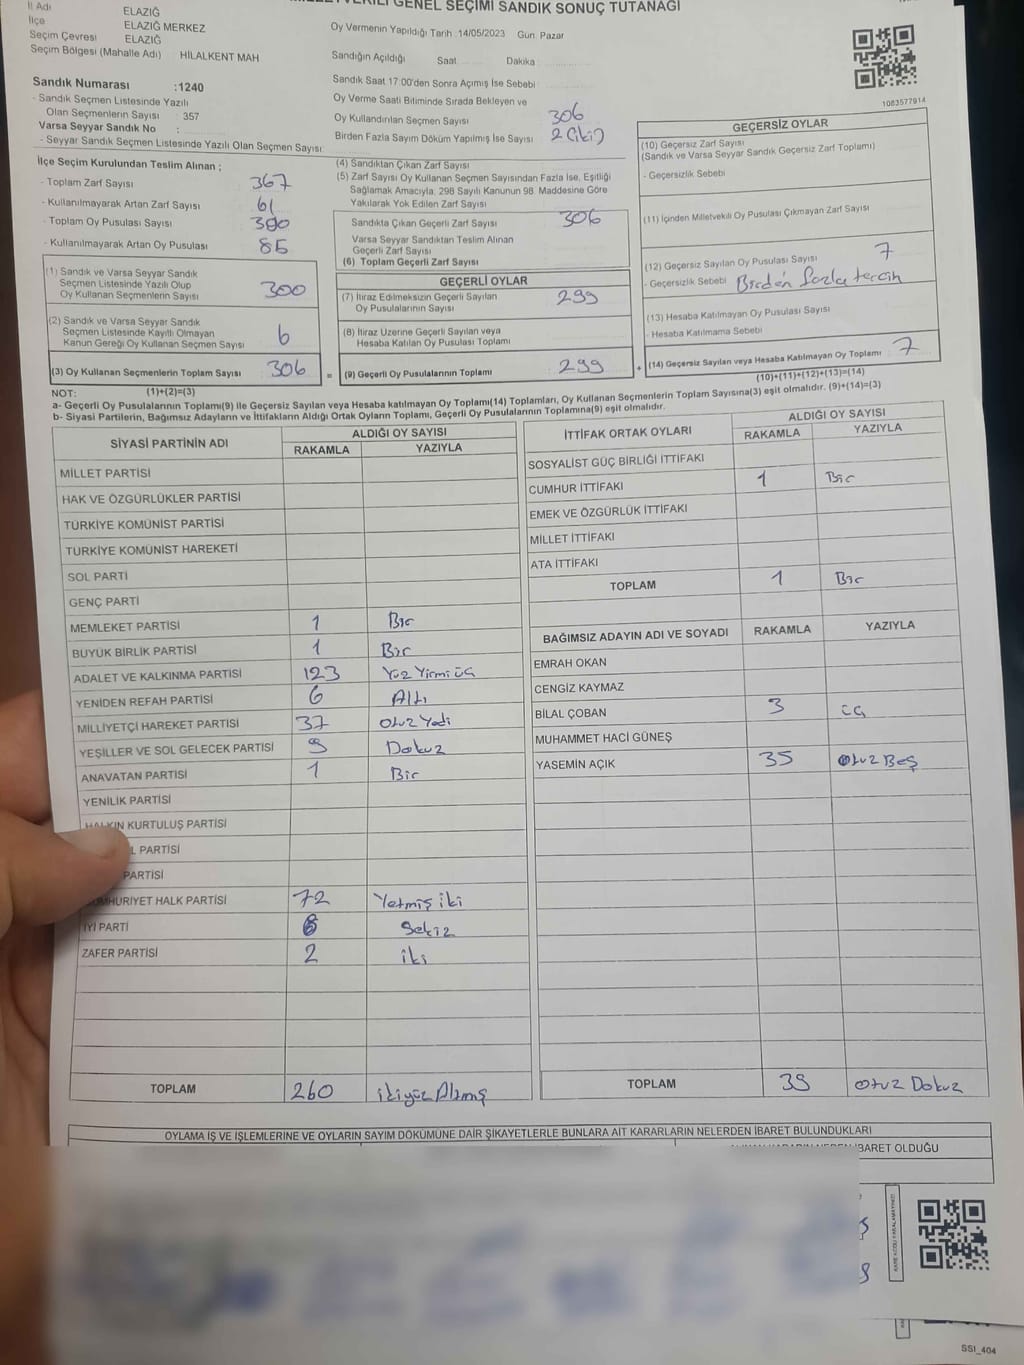 GENEL SEÇİMİ SANDIK SONUÇ TUTANAĞI
İl Adı ELAZIĞ
İlçe ELAZIĞ MERKEZ
Seçim Çevresi ELAZIĞ
Seçim Bölgesi (Mahalle Adı) HİLALKENT MAH
Oy Vermenin Yapıldığı Tarih :14/05/2023 Gün: Pazar
Sandığın Açıldığı Saat Dakika
Sandık Saat 17:00'den Sonra Açılmış İse Sebebi
Oy Verme Saati Bitiminde Sırada Bekleyen ve
Oy Kullandırılan Seçmen Sayısı 306
Birden Fazla Sayım Döküm Yapılmış İse Sayısı 2 (iki)
1083577914
Sandık Numarası :1240
- Sandık Seçmen Listesinde Yazılı
Olan Seçmenlerin Sayısı : 357
Varsa Seyyar Sandık No :
- Seyyar Sandık Seçmen Listesinde Yazılı Olan Seçmen Sayısı:
İlçe Seçim Kurulundan Teslim Alınan ;
- Toplam Zarf Sayısı 367
- Kullanılmayarak Artan Zarf Sayısı 61
- Toplam Oy Pusulası Sayısı
- Kullanılmayarak Artan Oy Pusulası 85
(1) Sandık ve Varsa Seyyar Sandık
Seçmen Listesinde Yazılı Olup
Oy Kullanan Seçmenlerin Sayısı 300
(2) Sandık ve Varsa Seyyar Sandık
Seçmen Listesinde Kayıtlı Olmayan
Kanun Gereği Oy Kullanan Seçmen Sayısı 6
(3) Oy Kullanan Seçmenlerin Toplam Sayısı 306
(4) Sandıktan Çıkan Zarf Sayısı
(5) Zarf Sayısı Oy Kullanan Seçmen Sayısından Fazla İse, Eşitliği
Sağlamak Amacıyla, 298 Sayılı Kanunun 98. Maddesine Göre
Yakılarak Yok Edilen Zarf Sayısı
Sandıkta Çıkan Geçerli Zarf Sayısı 306
Varsa Seyyar Sandıktan Teslim Alınan
Geçerli Zarf Sayısı
(6) Toplam Geçerli Zarf Sayısı
GEÇERLİ OYLAR
(7) İtiraz Edilmeksizin Geçerli Sayılan
Oy Pusulalarının Sayısı 299
(8) İtiraz Üzerine Geçerli Sayılan veya
Hesaba Katılan Oy Pusulası Toplamı
= (9) Geçerli Oy Pusulalarının Toplamı : 299 +
GEÇERSİZ OYLAR
(10) Geçersiz Zarf Sayısı
(Sandık ve Varsa Seyyar Sandık Geçersiz Zarf Toplamı)
- Geçersizlik Sebebi
(11) İçinden Milletvekili Oy Pusulası Çıkmayan Zarf Sayısı
(12) Geçersiz Sayılan Oy Pusulası Sayısı 7
- Geçersizlik Sebebi Birden fazla tercih
(13) Hesaba Katılmayan Oy Pusulası Sayısı
- Hesaba Katılmama Sebebi
(14) Geçersiz Sayılan veya Hesaba Katılmayan Oy Toplamı 7
NOT: (1)+(2)=(3) (10)+(11)+(12)+(13)=(14)
a- Geçerli Oy Pusulalarının Toplamı(9) ile Geçersiz Sayılan veya Hesaba katılmayan Oy Toplamı(14) Toplamları, Oy Kullanan Seçmenlerin Toplam Sayısına(3) eşit olmalıdır. (9)+(14)=(3)
b- Siyasi Partilerin, Bağımsız Adayların ve İttifakların Aldığı Ortak Oyların Toplamı, Geçerli Oy Pusulalarının Toplamına(9) eşit olmalıdır.
SİYASİ PARTİNİN ADI ALDIĞI OY SAYISI
RAKAMLA YAZIYLA
MİLLET PARTİSİ
HAK VE ÖZGÜRLÜKLER PARTİSİ
TÜRKİYE KOMÜNİST PARTİSİ
TÜRKİYE KOMÜNİST HAREKETİ
SOL PARTİ
GENÇ PARTİ
MEMLEKET PARTİSİ 1 Bir
BÜYÜK BİRLİK PARTİSİ 1 Bir
ADALET VE KALKINMA PARTİSİ 123 Yüz Yirmi üç
YENİDEN REFAH PARTİSİ 6 Altı
MİLLİYETÇİ HAREKET PARTİSİ 37 Otuz Yedi
YEŞİLLER VE SOL GELECEK PARTİSİ 9 Dokuz
ANAVATAN PARTİSİ 1 Bir
YENİLİK PARTİSİ
HALKIN KURTULUŞ PARTİSİ
L PARTİSİ
PARTİSİ
CUMHURİYET HALK PARTİSİ 72 Yetmiş iki
İYİ PARTİ 8 Sekiz
ZAFER PARTİSİ 2 iki
TOPLAM 260 ikiyüz Altmış
İTTİFAK ORTAK OYLARI ALDIĞI OY SAYISI
RAKAMLA YAZIYLA
SOSYALİST GÜÇ BİRLİĞİ İTTİFAKI
CUMHUR İTTİFAKI 1 Bir
EMEK VE ÖZGÜRLÜK İTTİFAKI
MİLLET İTTİFAKI
ATA İTTİFAKI
TOPLAM 1 Bir
BAĞIMSIZ ADAYIN ADI VE SOYADI RAKAMLA YAZIYLA
EMRAH OKAN
CENGİZ KAYMAZ
BİLAL ÇOBAN 3 üç
MUHAMMET HACİ GÜNEŞ
YASEMİN AÇIK 35 Otuz Beş
TOPLAM 39 Otuz Dokuz
OYLAMA İŞ VE İŞLEMLERİNE VE OYLARIN SAYIM DÖKÜMÜNE DAİR ŞİKAYETLERLE BUNLARA AİT KARARLARIN NELERDEN İBARET BULUNDUKLARI
İBARET OLDUĞU
SSI_404